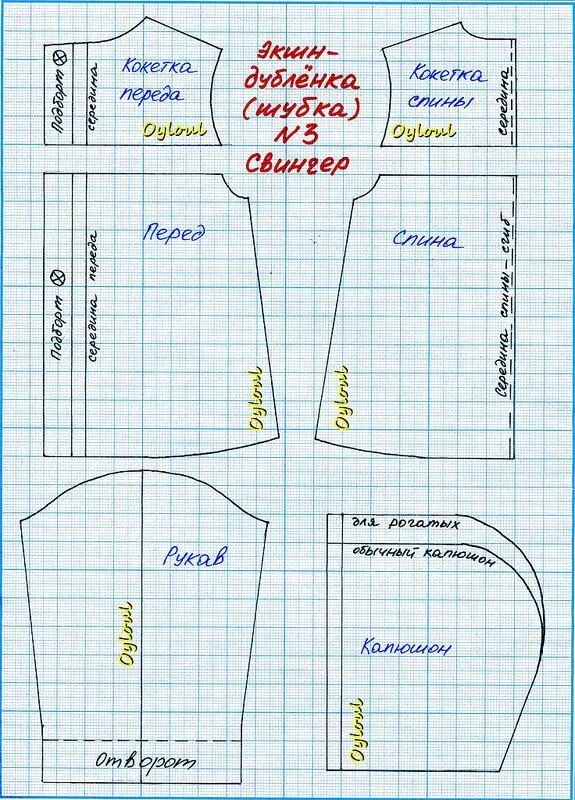 Экшн-
дублёнка
(шубка)
N3
Свингер
Подборт
середина
Кокетка
переда
Oyloul
Кокетка
спины
Oyloul
середина
Подборт
середина переда
Перед
Oyloul
Спина
Oyloul
Середина спины - сгиб
Рукав
Oyloul
Отворот
для рогатых
обычный капюшон
Капюшон
Oyloul